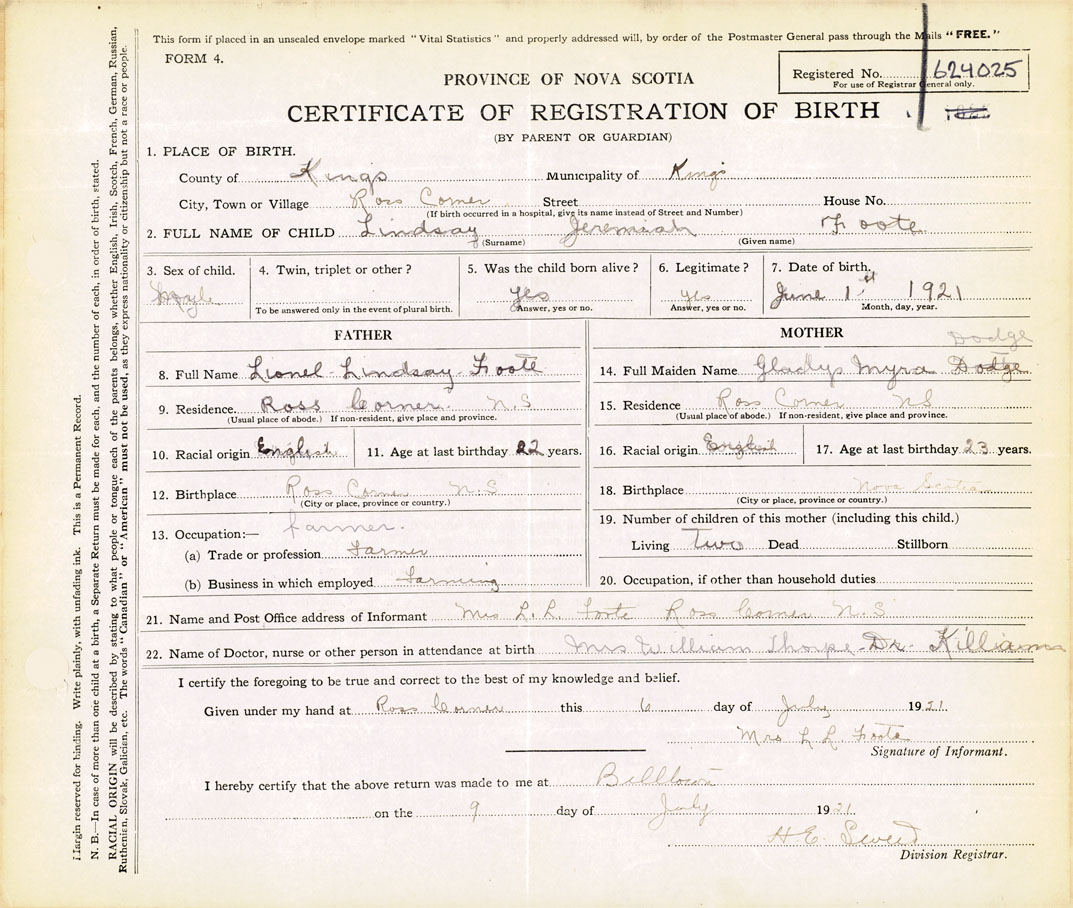 This form if placed in an unsealed envelope marked "Vital Statistics" and properly addressed will, by order of the Postmaster General pass through the Mails "FREE."
FORM 4.
Registered No. 624025
For use of Registrar General only.
PROVINCE OF NOVA SCOTIA
CERTIFICATE OF REGISTRATION OF BIRTH
(BY PARENT OR GUARDIAN)
1. PLACE OF BIRTH.
County of Kings Municipality of Kings
City, Town or Village Ross Corner Street House No.
(If birth occurred in a hospital, give its name instead of Street and Number)
2. FULL NAME OF CHILD Lindsay Jeremiah Foote
(Surname) (Given name)
3. Sex of child. 4. Twin, triplet or other? 5. Was the child born alive? 6. Legitimate? 7. Date of birth.
yes yes June 1st 1921
To be answered only in the event of plural birth. Answer, yes or no. Answer, yes or no. Month, day, year.
FATHER
8. Full Name Lionel Lindsay Foote
9. Residence. Ross Corner N.S
(Usual place of abode.) If non-resident, give place and province.
10. Racial origin English 11. Age at last birthday 22 years.
12. Birthplace Ross Corner N.S
(City or place, province or country.)
13. Occupation:— farmer.
(a) Trade or profession Farmer
(b) Business in which employed Farming
MOTHER
Dodge
14. Full Maiden Name Gladys Myra Dodge
15. Residence Ross Corner NS
(Usual place of abode.) If non-resident, give place and province.
16. Racial origin English 17. Age at last birthday 23 years.
18. Birthplace Nova Scotia
(City or place, province or country.)
19. Number of children of this mother (including this child.)
Living Two Dead Stillborn
20. Occupation, if other than household duties
21. Name and Post Office address of Informant Mrs L. L. Foote Ross Corner N.S
22. Name of Doctor, nurse or other person in attendance at birth Mrs William Thorpe Dr. Killiams
I certify the foregoing to be true and correct to the best of my knowledge and belief.
Given under my hand at Ross Corner this 6 day of July 1921
Mrs L L Foote
Signature of Informant.
I hereby certify that the above return was made to me at Billtown
on the 9 day of July 1921
H E
Division Registrar.
Margin reserved for binding. Write plainly, with unfading ink. This is a Permanent Record.
N. B.—In case of more than one child at a birth, a Separate Return must be made for each, and the number of each, in order of birth, stated.
RACIAL ORIGIN will be described by stating to what people or tongue each of the parents belongs, whether English, Irish, Scotch, French, German, Russian,
Ruthenian, Slovak, Galician, etc. The words "Canadian" or "American" must not be used, as they express nationality or citizenship but not a race or people.